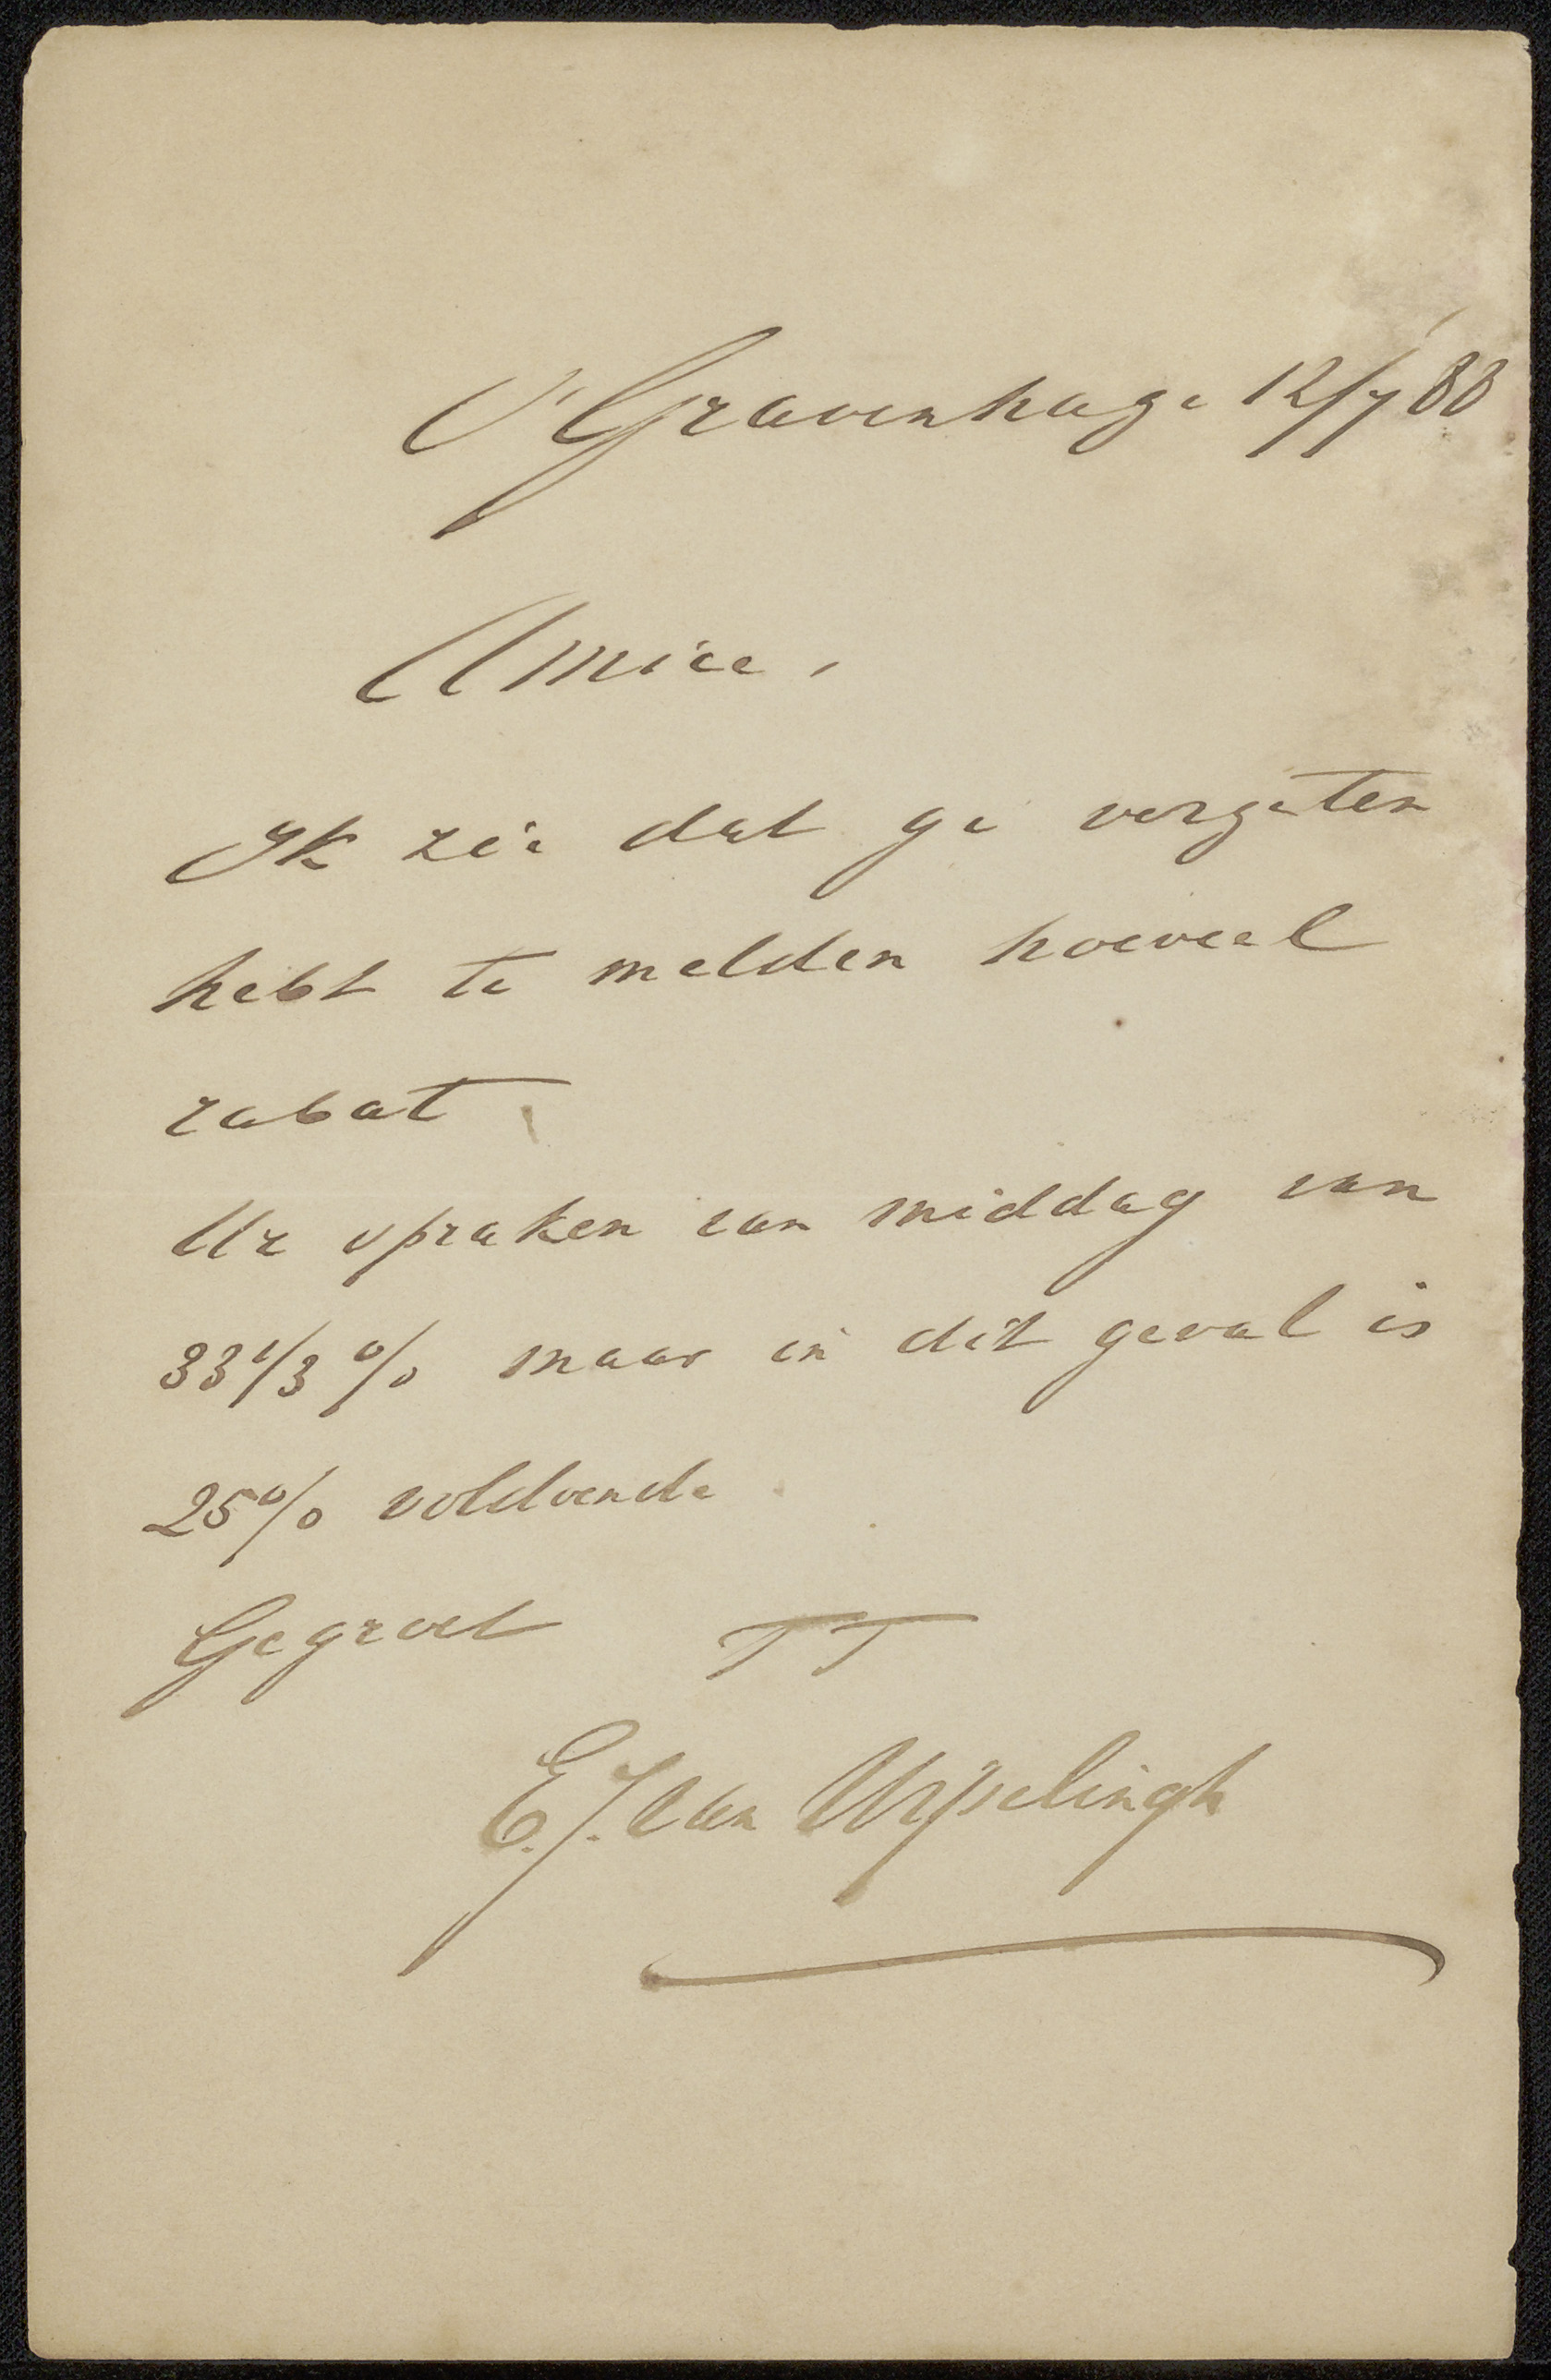 s'Gravenhage 12/7 88
Amice,
Ik zie dat ge vergeten
hebt te melden hoeveel
rabat
We spraken van middag van
33 1/3 % maar in dit geval is
25% voldoende
Gegroet TT
E.J. Van Wisselingh